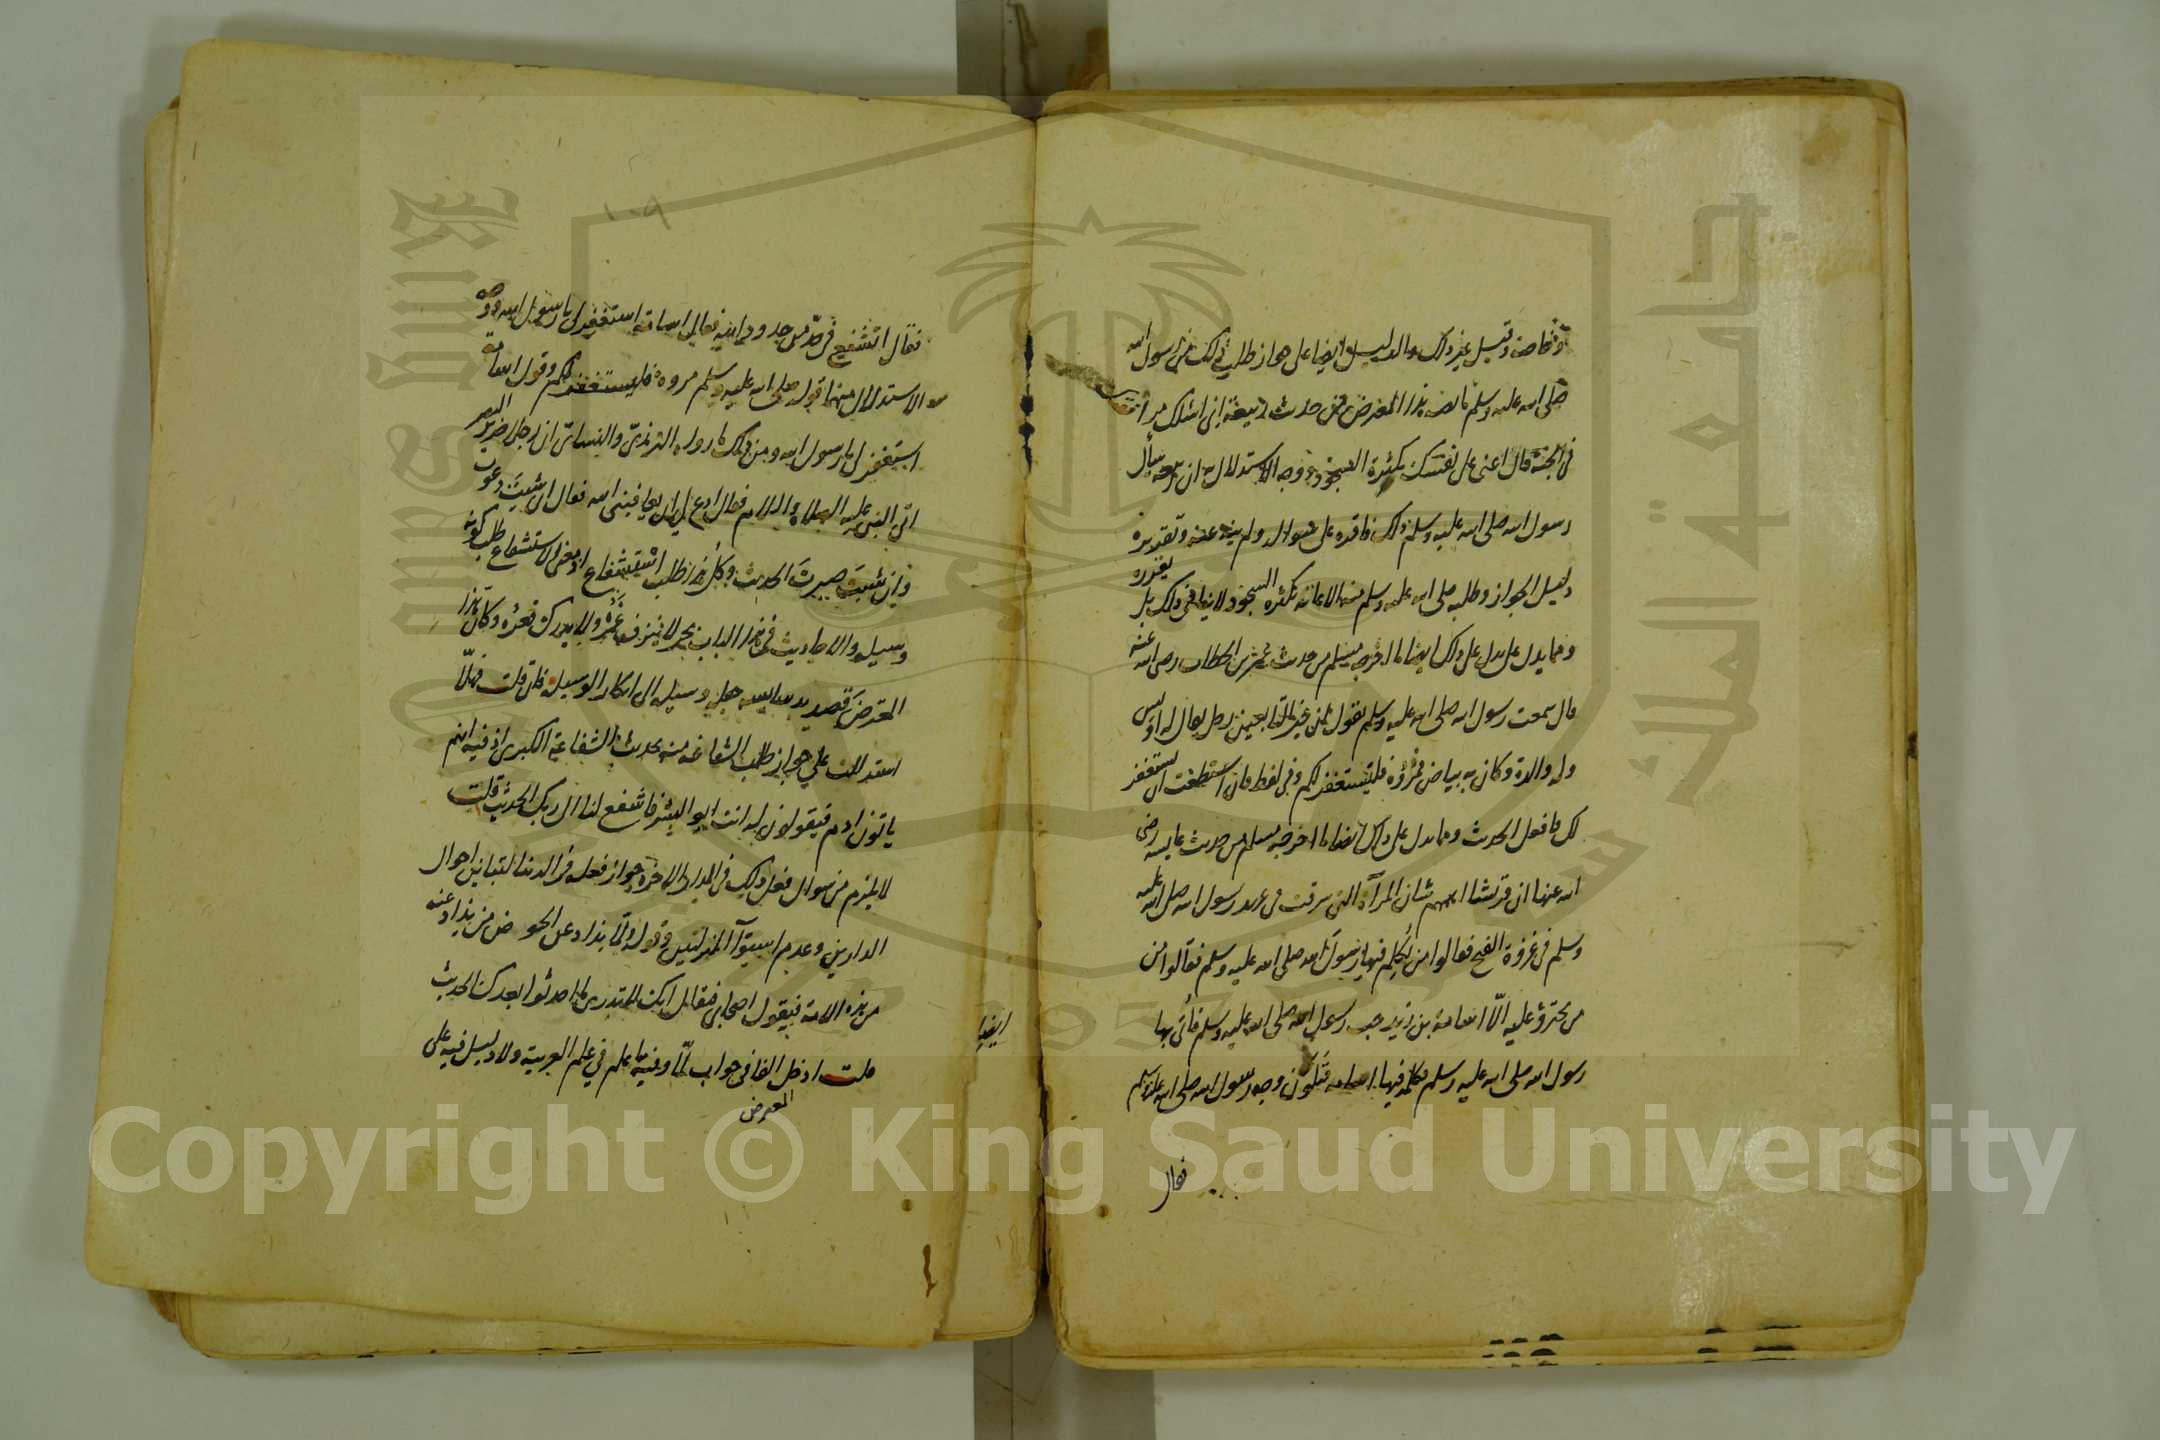 وخاصة وقيل غير ذلك والدليل ايضا على جواز طلب ذلك من رسول الله
صلى الله عليه وسلم هذا المعترض من حديث ربيعة انى اسئلك مرافقتك
فى الجنة قال اعنى على نفسك بكثرة السجود ووجه الاستدلال به ان ربيعة سأل
رسول الله صلى الله عليه وسلم ذلك فاقره على سواله ولم ينهه عنه وتقريره
دليل الجواز وطلبه صلى الله عليه وسلم منه الاعانة بكثرة السجود لا ينافى ذلك بل يقرره
ومما يدل على ذلك ايضا ما اخرجه مسلم من حديث عمر بن الخطاب رضى الله عنه
قال سمعت رسول الله صلى الله عليه وسلم يقول ان خير التابعين رجل يقال له اويس
وله والدة وكان به بياض فمروه فليستغفر لكم وفى لفظ فان استطعت ان يستغفر
لك فافعل الحديث ومما يدل على ذلك ايضا ما اخرجه مسلم من حديث عايشة رضى
الله عنها ان قريشا اهمهم شان المرأة التى سرقت فى عهد رسول الله صلى الله عليه
وسلم فى غزوة الفتح فقالوا من يكلم فيها رسول الله صلى الله عليه وسلم فقالوا من
من يجترئ عليه الا اسامة بن زيد حب رسول الله صلى الله عليه وسلم فأتى بها
رسول الله صلى الله عليه وسلم فكلمه فيها اسامة فتلون وجه رسول الله صلى الله عليه وسلم
فقال
١٠٩
فقال اتشفع فى حد من حدود الله فقال اسامة استغفر لى يا رسول الله ووجه
الاستدلال منها قوله صلى الله عليه وسلم مروه فليستغفر لكم وقول اسامة
استغفر لى يا رسول الله ومن ذلك ما رواه الترمذى والنسائى ان رجلا ضرير البصر
اتى النبى عليه الصلاة والسلام فقال ادع لى ان يعافينى الله فقال ان شيت دعوت
وان شيت صبرت الحديث وكل هذا طلب استشفاع اذ معنى الاستشفاع طلب كونه
وسيلة والاحاديث فى هذا الباب بحر لا ينزف غمره ولا يدرك قعره وكان هذا
المعترض قصد جعله وسيلة الى انكار الوسيلة فان قلت فهلا
استدللت على جواز طلب الشفاعة منه بحديث الشفاعة الكبرى اذ فيه انهم
ياتون ادم فيقولون له انت ابو البشر فاشفع لنا الى ربك الحديث قلت
لا يلزم من سوال فعل ذلك فى الدار الاخرة جواز فعله فى الدنيا لتباين احوال
الدارين وعدم استواء المنزلتين وقوله ولما يذاد عن الحوض من يذاد عنه
من هذه الامة فيقول اصحابى فيقال انك لا تدرى ما احدثوا بعدك الحديث
قلت ادخل الفا فى جواب لما وفيه ما علم فى علم العربية ولا دليل فيه على
المعترض
ايضا
Copyright © King Saud University
جامعة الملك سعود
King Saud University
1957